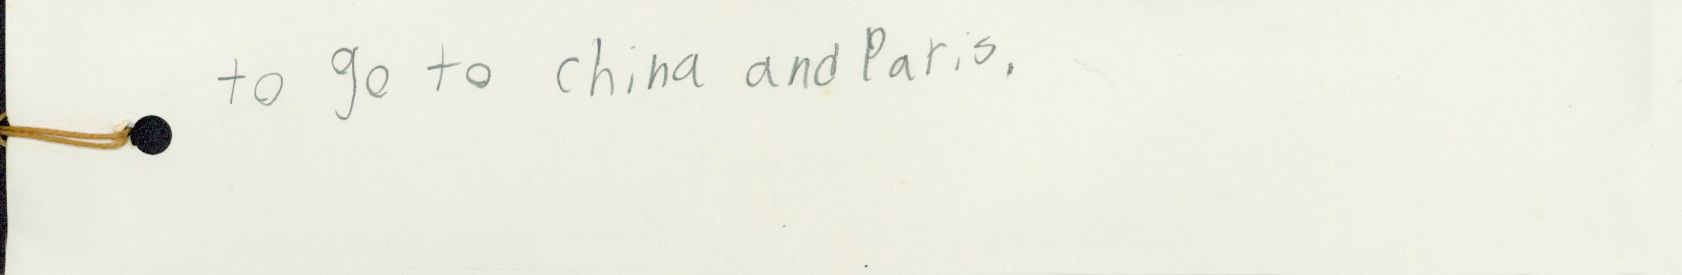 to go to china and Paris.